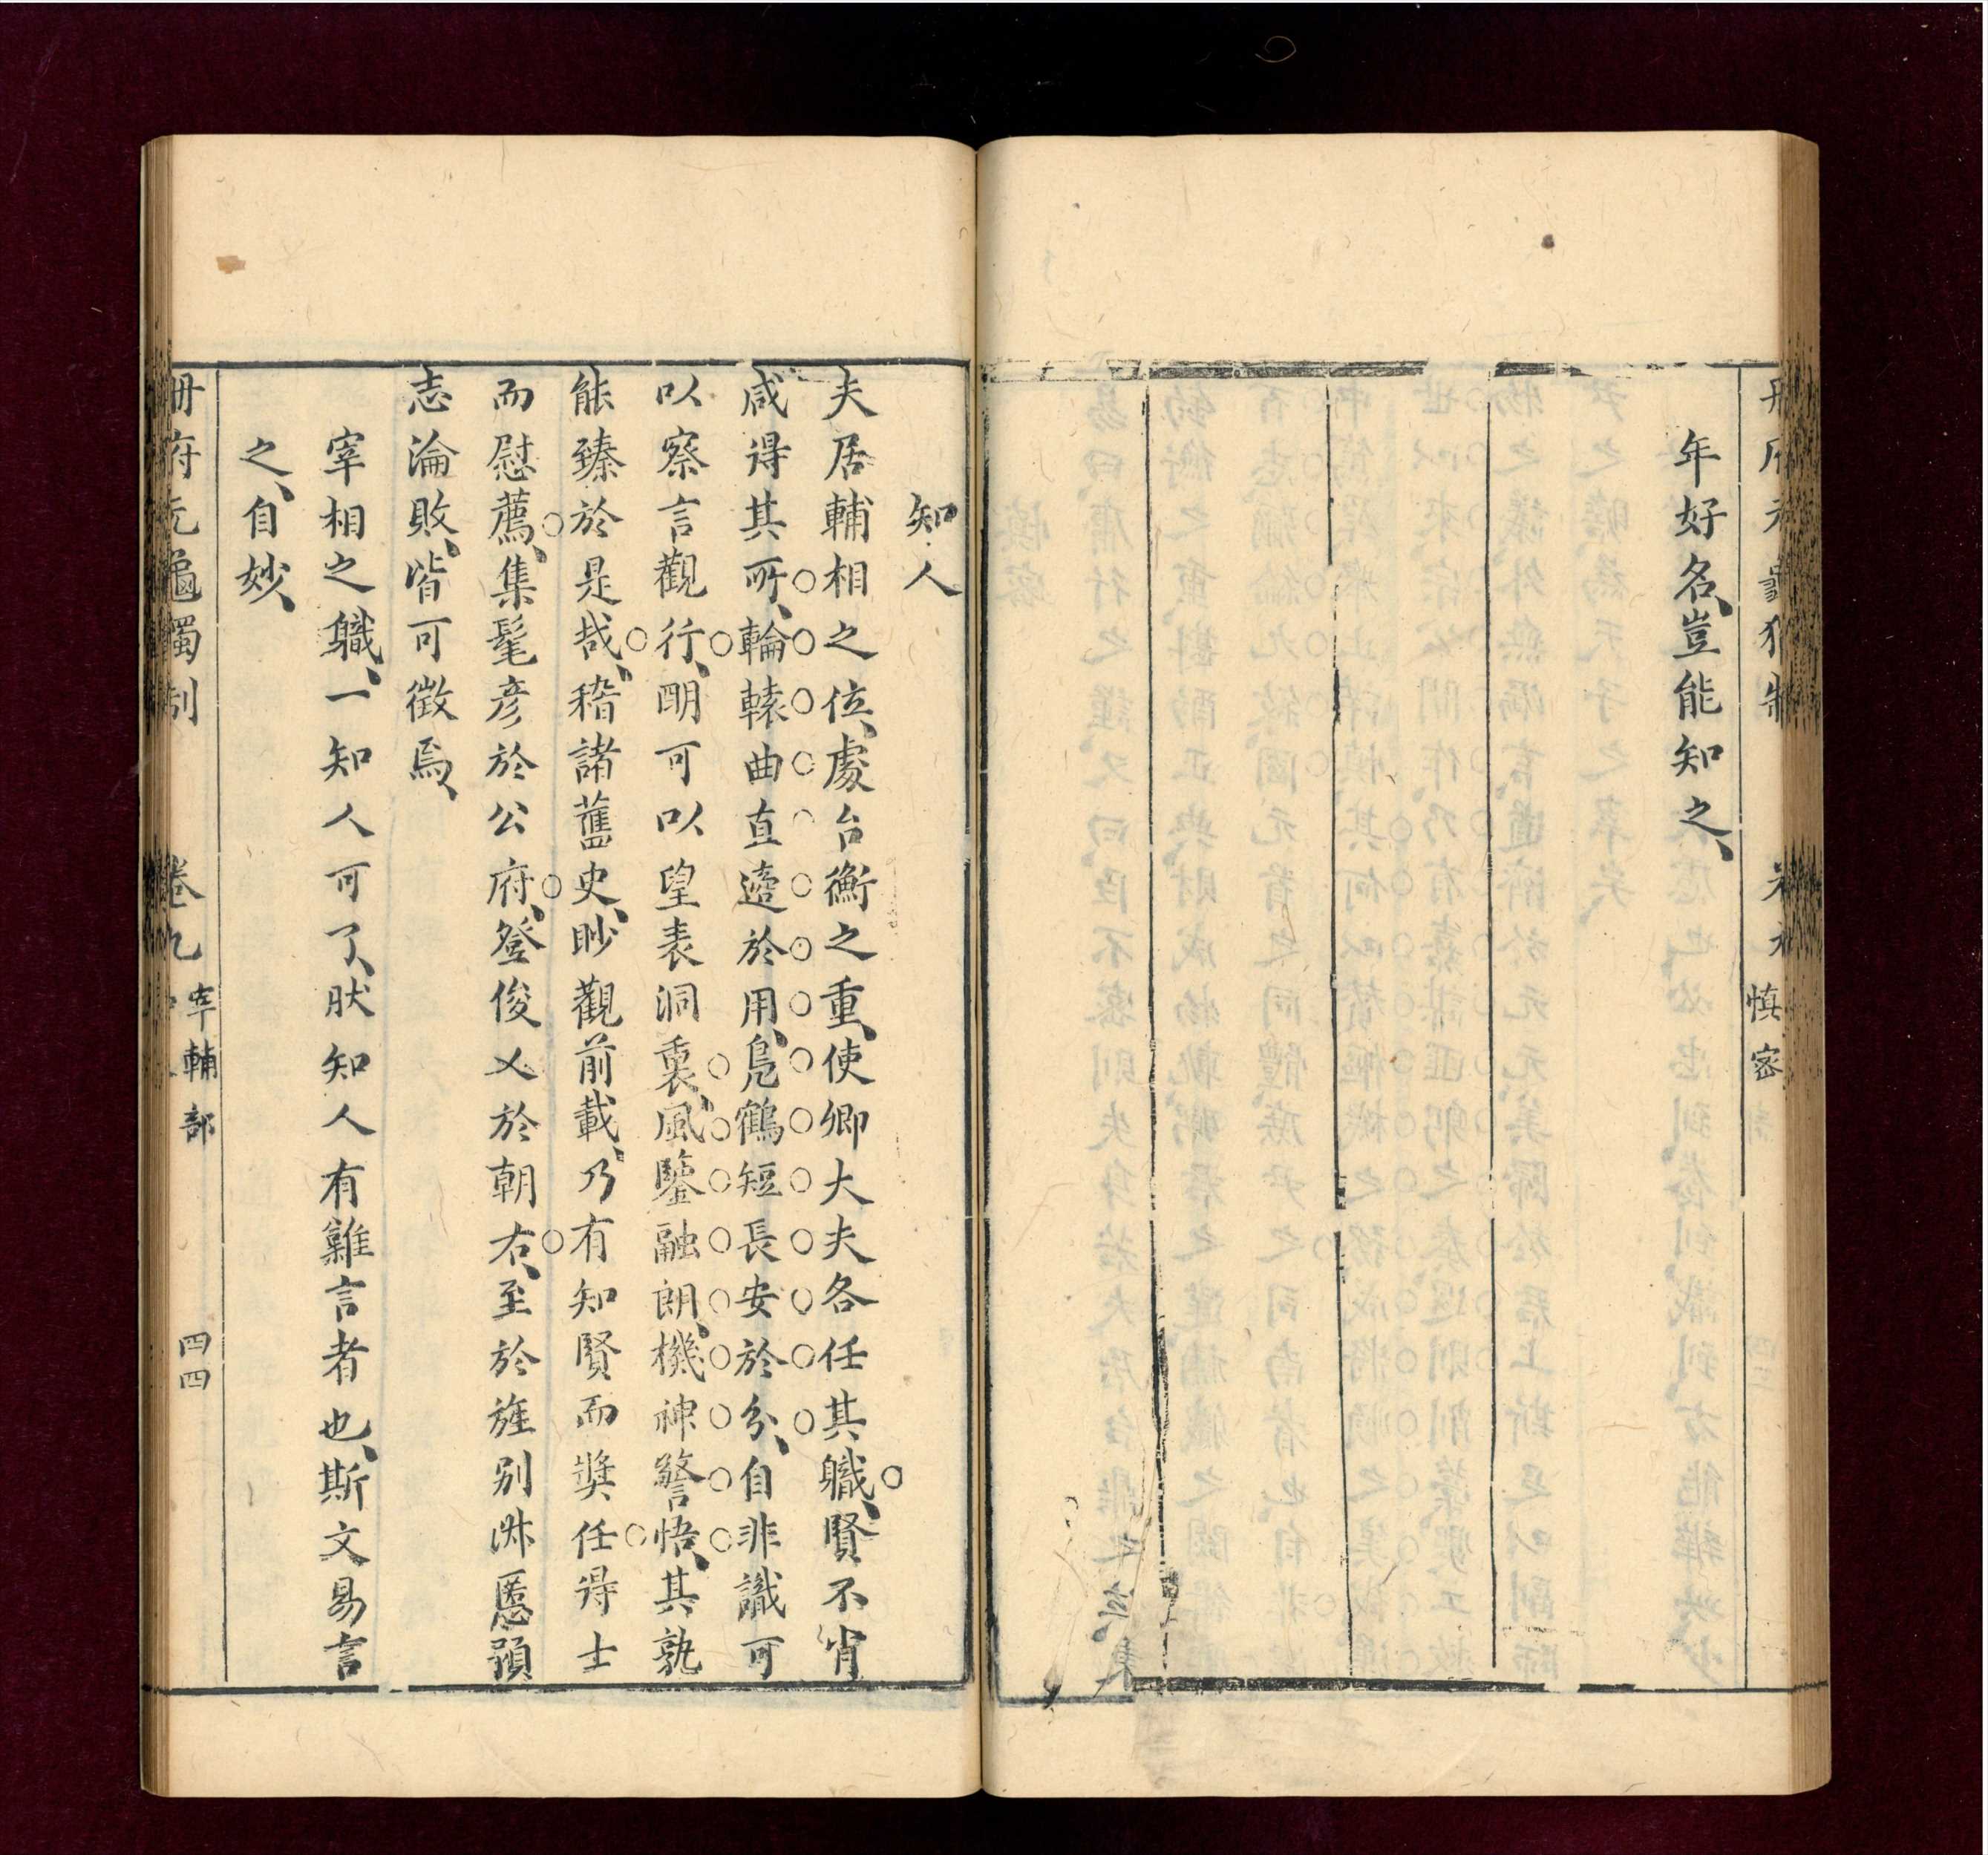 慎密
年好名、豈能知之、
知人
夫居輔相之位、處台衡之重、使卿大夫各任其職、賢不肖
咸得其所、輪轅曲直適於用、鳧鶴短長安於分、自非識可
以察言觀行、明可以望表洞裏、風鑒融朗、機神警悟、其孰
能臻於是哉、稽諸舊史、眇觀前載、乃有知賢而奬任得士
而慰薦、集髦彥於公府、登俊乂於朝右、至於旌別淑慝預
志淪敗、皆可徵焉、
宰相之職、一知人可了、狀知人有難言者也、斯文易言
之、自妙、
冊府元龜獨制
卷九
宰輔部
四四